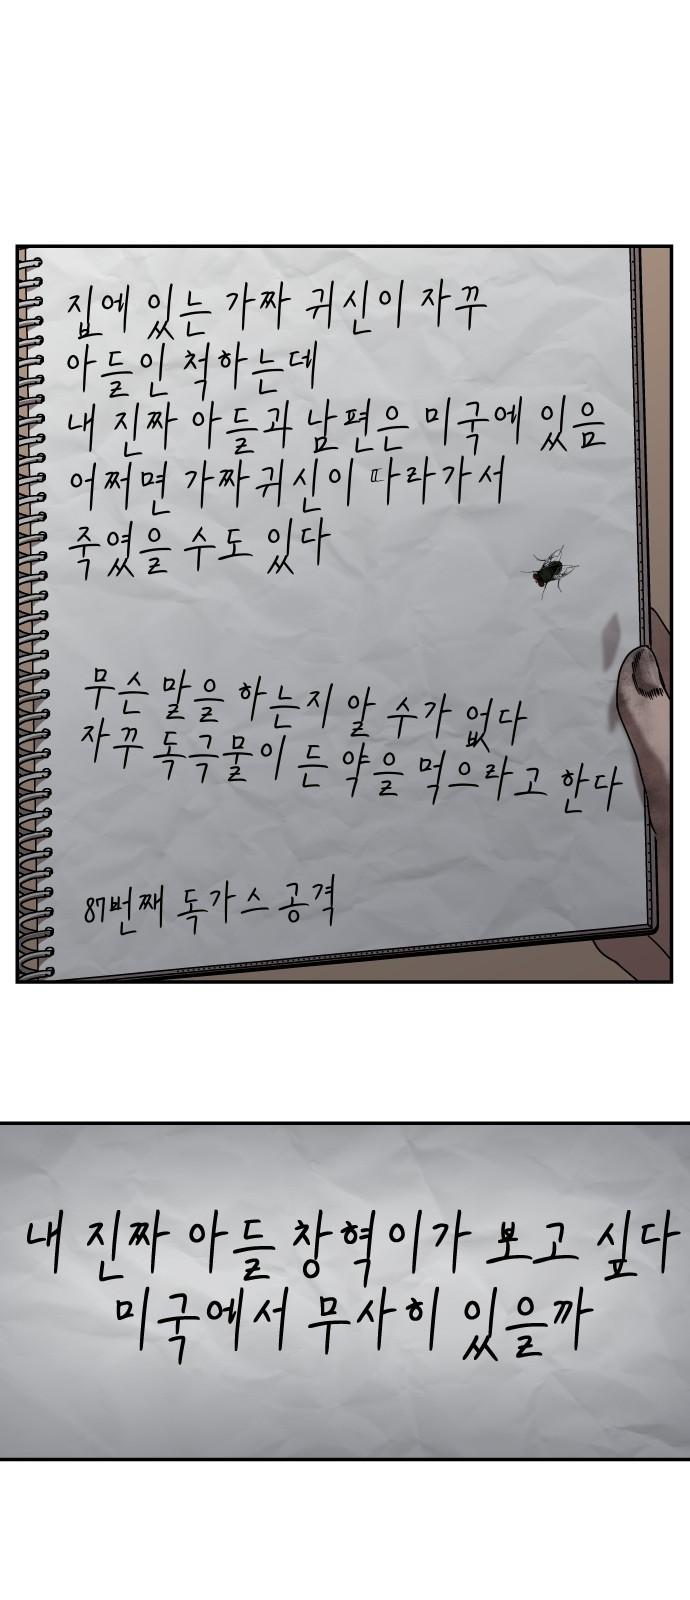 집에 있는 가짜 귀신이 자꾸
아들인 척하는데
내 진짜 아들과 남편은 미국에 있음
어쩌면 가짜귀신이 따라가서
죽였을 수도 있다
무슨 말을 하는지 알 수가 없다
자꾸 독극물이 든 약을 먹으라고 한다
87번째 독가스 공격
내 진짜 아들 창혁이가 보고 싶다
미국에서 무사히 있을까